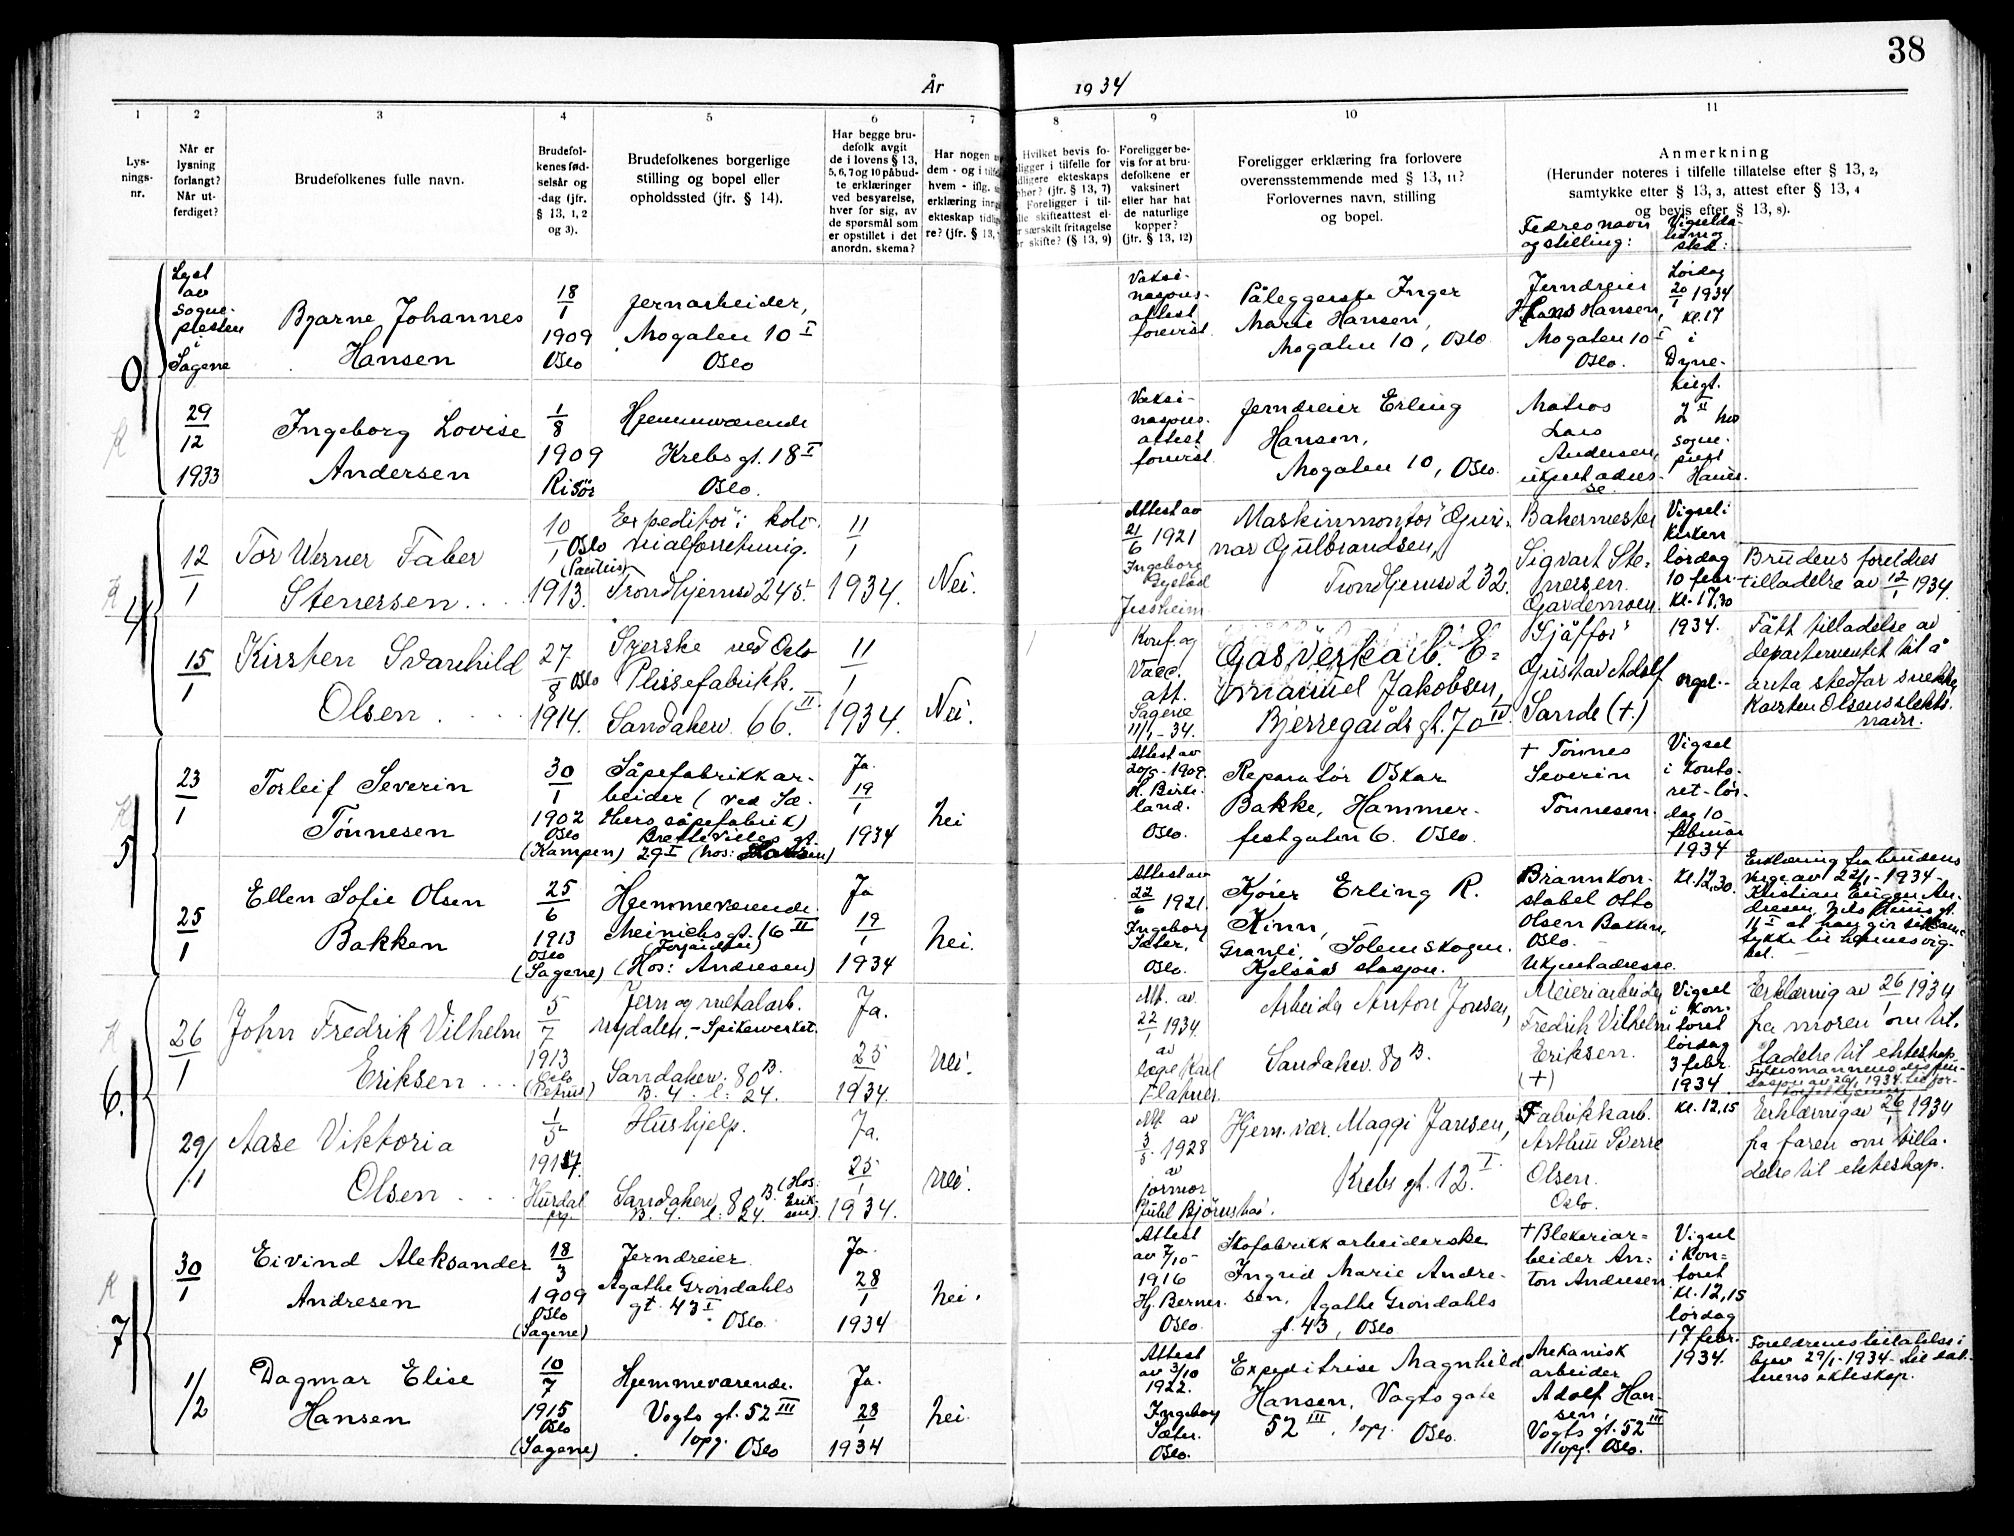 38
År 1934
1 2 3 4 5 6 7 8 9 10 11
Lys-
nings-
nr.
Når er
lysning
forlangt?
Når ut-
ferdiget?
Brudefolkenes fulle navn.
Brudefol-
kenes fød-
selsår og
-dag (jfr.
§ 13, 1, 2
og 3).
Brudefolkenes borgerlige
stilling og bopel eller
opholdssted (jfr. § 14).
Har begge bru-
defolk avgit
de i lovens § 13,
5, 6, 7 og 10 påbud-
te erklæringer
ved besvarelse,
hver for sig, av
de spørsmål som
er opstillet i det
anordn. skema?
Har nogen
dem - og i
hvem - iflg.
erklæring
ekteskap
re? (jfr. § 13,
Hvilket bevis fo-
religger i tilfelle for
tidligere ekteskaps
(jfr. § 13, 7)
Foreligger i til-
skifteattest el-
særskilt fritagelse
for skifte? (§ 13, 9)
Foreligger be-
vis for at bru-
defolkene er
vaksinert
eller har hat
de naturlige
kopper?
(jfr. § 13, 12)
Foreligger erklæring fra forlovere
overensstemmende med § 13, 11?
Forlovernes navn, stilling
og bopel.
Anmerkning
(Herunder noteres i tilfelle tillatelse efter § 13, 2,
samtykke efter § 13, 3, attest efter § 13, 4
og bevis efter § 13, 8).
Fedres navn
og stilling:
Vigselda-
tum og
sted:
0
Lyst
av
sogne-
presten
i
Sagene
Bjarne Johannes
Hansen
18
1
1909
Oslo
Jernarbeider,
Mogaten 10 I
Oslo
Vaksi-
nasjons-
attest
forevist.
Påleggerske Inger
Marie Hansen,
Mogaten 10, Oslo
Jerndreier
Hans Hansen,
Mogaten 10 I
Oslo.
Lørdag
20
1 1934
kl. 17
i
29
12
1933
Ingeborg Lovise
Andersen
1
8
1909
Risør
Hjemmeværende
Krebs gt. 18 I
Oslo.
Vaksi-
nasjons-
attest
forevist.
Jerndreier Erling
Hansen,
Mogaten 10, Oslo.
Matros
Lars
Andersen,
ukjent adres-
se
sogne-
prest
4
12
1
Tor Werner Faber
Stenersen
10
1 Oslo
(Paulus)
1913.
Expeditør i kolo-
nialforretning.
Trondhjemsv 245.
11
1
1934.
Nei.
Attest av
21
6 1921
Ingeborg
Jessheim
Maskinmontør Gun-
nar Gulbrandsen,
Trondhjemsv 232.
Bakermester
Sigvart Ste-
nersen.
Gardemoen.
Vigsel i
kirken
lørdag
10 febr.
kl. 17,30
1934.
Brudens foreldres
tilladelse av 12/1 1934.
15
1
Kirsten Svanhild
Olsen
27
8 Oslo
1914.
Syerske ved Oslo
Plissefabrikk.
Sandakerv. 66. II
11
1
1934.
Nei.
Konf. og
Vacc.
att.
Sagene
11/1-34.
Gasverkarb. E-
manuel Jakobsen,
Bjerregårds gt. 70 IV.
Sjåfør
Gustav Adolf
Sande (+)
orgel.
Fått tilladelse av
departementet til å
anta stedfar snekker
Karsten Olsens slekts-
navn.
5
23
1
Torleif Severin
Tønnesen
30
1
1902
Oslo
(Kampen)
Såpefabrikkar-
beider (ved Sæ-
thers såpefabrik)
Bretteviles gt.
29 I
Ja.
19
1
1934
Nei
Attest av
20/5-1909.
H. Birke-
land.
Oslo.
Reparatør Oskar
Bakke, Hammer-
festgaten 6. Oslo.
+ Tønnes
Severin
Tønnesen.
Vigsel
i konto-
ret - lør-
dag 10
februar
1934
Kl. 12,30.
25
1
Ellen Sofie Olsen
Bakken
25
6
1913
Oslo
(Sagene)
Hjemmeværende.
Meinichs gt. 16 III
(Hos: Andresen)
Ja
19
1
1934
Nei.
Attest av
22
6 1921.
Ingeborg
Sæter,
Oslo.
Kjører Erling R.
Kinn,
Granli, Solemskogen.
Kjelsås stasjon.
Brannkon-
stabel Otto
Olsen Bakken,
Oslo.
Ukjent adresse.
Erklæring fra brudens
verge av 22/1-1934-
Kristian An-
dresen, Nils Huus gt.
11 I at han gir sitt sam-
tykke til hennes vig-
sel.
6.
26
1
John Fredrik Vilhelm
Eriksen
5
7
1913
Oslo
(Petrus)
Jern og metalarb.
Nydalen. - Spikerverket.
Sandakerv. 80 B.
B. 4. l: 24.
Ja.
25
1
1934.
Nei.
Att. av
22
1 1934.
av
læge Karl
Arbeider Anton Jonsen,
Sandakerv. 80 B.
Meieriarbeider
Fredrik Vilhelm
Eriksen.
(+)
Vigsel
i kon-
toret
lørdag
3 febr.
1934
kl. 12,15
Erklæring av 26/1 1934
fra moren om til-
ladelse til ekteskap.
Fylkesmannens dispen-
sasjon av 29/1 1934
29/
1
Aase Viktoria
Olsen
1
5
1917.
Hurdal
prg.
Hushjelp.
Sandakerv. 80 B. (Hos:
Erik-
sen)
B. 4. l: 24.
Ja.
25
1
1934.
Nei.
Att. av
3
5. 1928
av
jormor
Hjem. vær. Maggi Jansen,
Krebs gt. 12. I
Fabrikkarb.
Arthur Sverre
Olsen.
Oslo.
Erklæring av 26/1 1934
fra faren om tilla-
delse til ekteskap.
7
30
1
Eivind Aleksander
Andresen
18
3
1909
Oslo
(Sagene)
Jerndreier
Agathe Grøndahls
gt. 43 I. Oslo.
Ja.
28
1
1934
Nei.
Attest
av 7/10-
1916
Hj. Berner.
Oslo.
Skofabrikkarbeiderske
Ingrid Marie Andre-
sen, Agathe Grøndahls
gt. 43, Oslo
+ Blekeriar-
beider An-
ton Andresen
Vigsel
i kon-
toret
kl. 12,15
lørdag
17 febr.
1934.
1/
/2
Dagmar Elise
Hansen
10
7
1915
Oslo
(Sagene)
Hjemmeværende.
Vogts gt. 52 III
1 opg. Oslo
Ja.
28
1
1934
Nei.
Attest
av 3/10
1922.
Ingeborg
Sæter.
Oslo.
Expeditrise Magnhild
Hansen, Vogts gate
52 III. 1 opg. Oslo.
Mekanisk
arbeider
Adolf Han-
sen,
Vogts gt. 52 III
1 opg. Oslo.
Foreldrenes tillatelse i
brev 29/1-1934- til dat-
terens ekteskap.